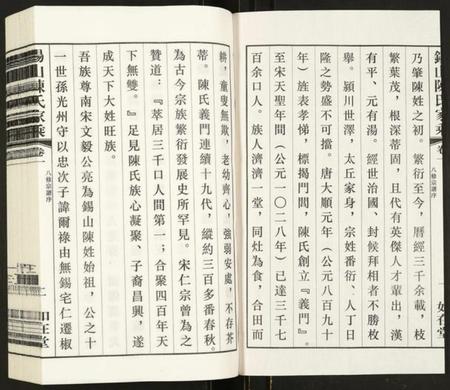 錫山陳氏家乘 卷一 八修宗譜序
乃肇陳姓之初。繁衍至今，曆經三千余載，枝
繁葉茂，根深蒂固，且代有英傑人才輩出，漢
有平、元有湯。經世治國、封候拜相者不勝枚
舉。潁川世澤，太丘家身，宗姓番衍、人丁日
隆之勢盛不可擋。唐大順元年（公元八百九十
年）旌表孝悌，標揭門閭，陳氏創立『義門』。
至宋天聖年間（公元一〇二八年）已達三千七
百余口人。族人濟濟一堂，同灶為食，合田而
耕，童叟無欺，老幼齊心，強弱安處，不存芥
蒂。陳氏義門連續十九代，縱約三百多番春秋。
為古今宗族繁衍發展史所罕見。宋仁宗曾為之
贊道：『萃居三千口人間第一；合聚四百年天
下無雙。』足見陳氏族心凝聚、子裔昌興，遂
成天下大姓旺族。
吾族尊南宋文毅公亮為錫山陳姓始祖，公之十
一世孫光州守以忠次子諱爾祿由無錫宅仁遷椒
錫山陳氏家乘 卷一 八修宗譜序